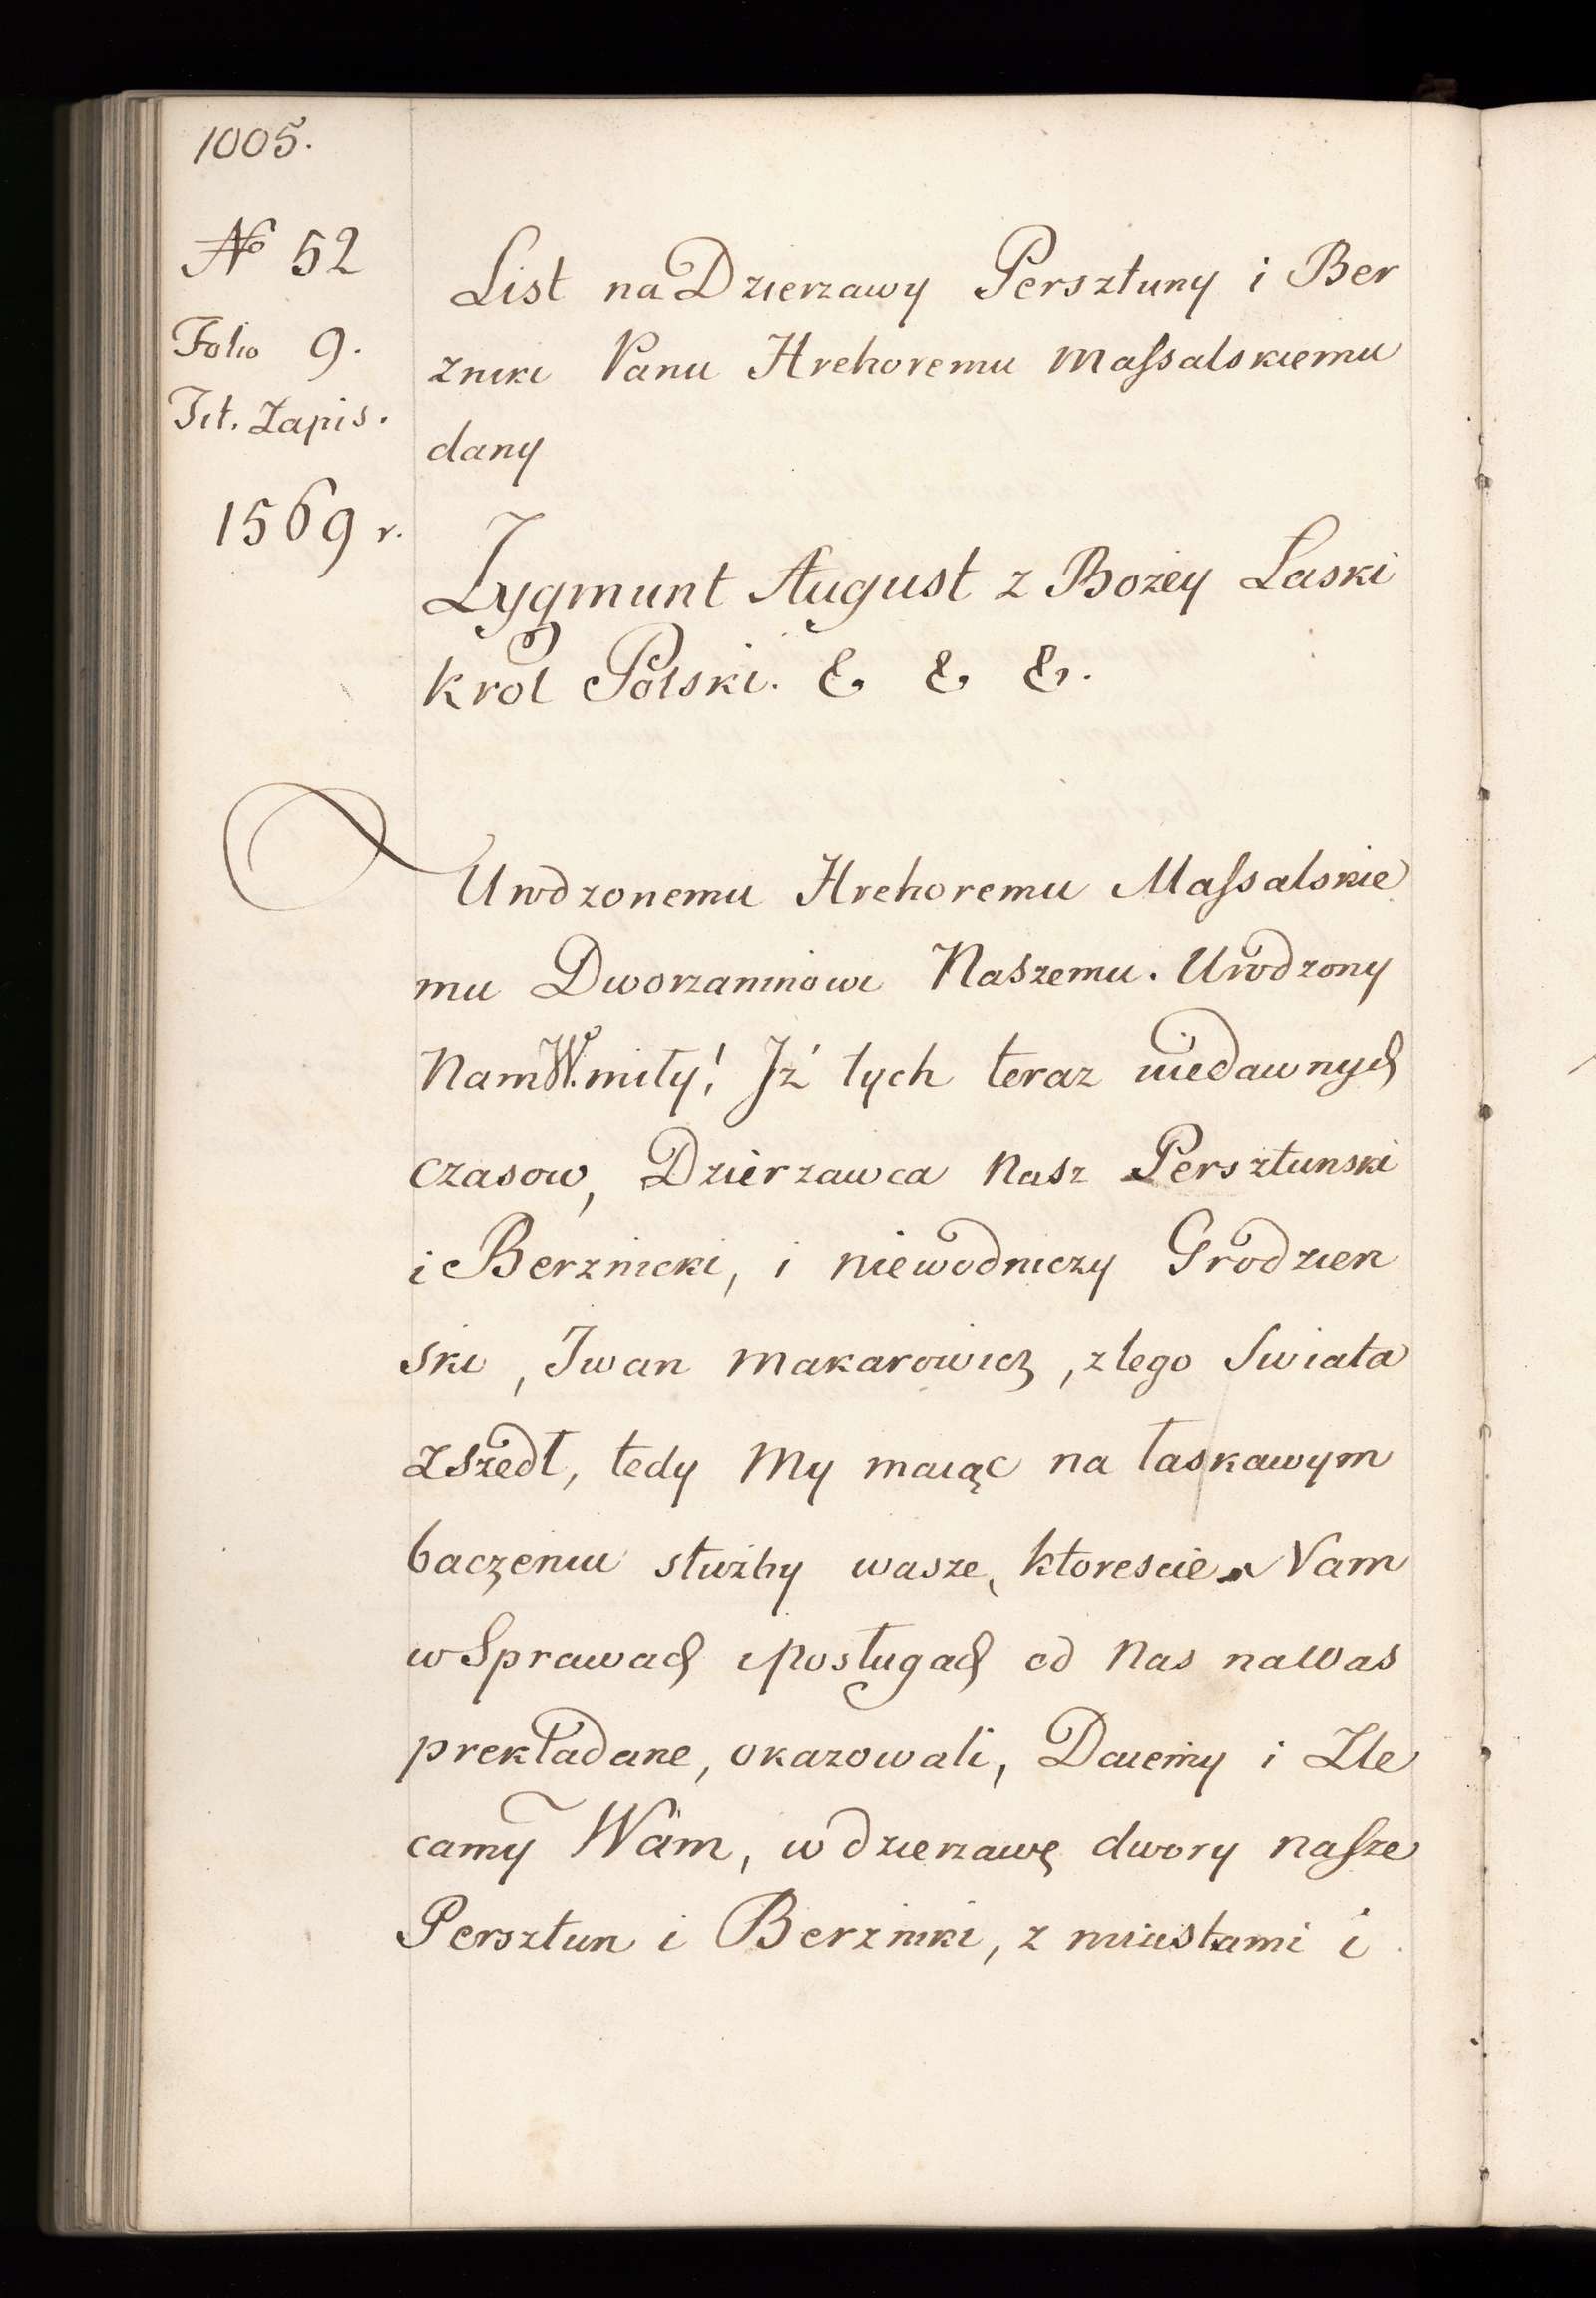 1005.
№ 52
Folio 9.
Tit. Zapis.
1569 r.
List na Dzierzawy Persztuny i Ber
zniki Panu Hrehoremu Massalskiemu
dany
Zygmunt August z Bożey Laski
krol Polski. & & &.
Urodzonemu Hrehoremu Massalskie
mu Dworzaninowi Naszemu. Urodzony
Nam W. miły! Jż tych teraz niedawnych
czasow, Dzierzawca Nasz Persztunski
i Berznicki, i niewodniczy Grodzien
ski, Iwan Makarowicz, z tego Swiata
Zszedł, tedy My maiąc na łaskawym
baczeniu służby wasze, ktoreście Nam
w Sprawach i posługach od Nas na Was
prekładane, okazowali, Daiemy i Zle
camy Wam, w dzierzawę dwory nasze
Persztun i Berzniki, z miastami i